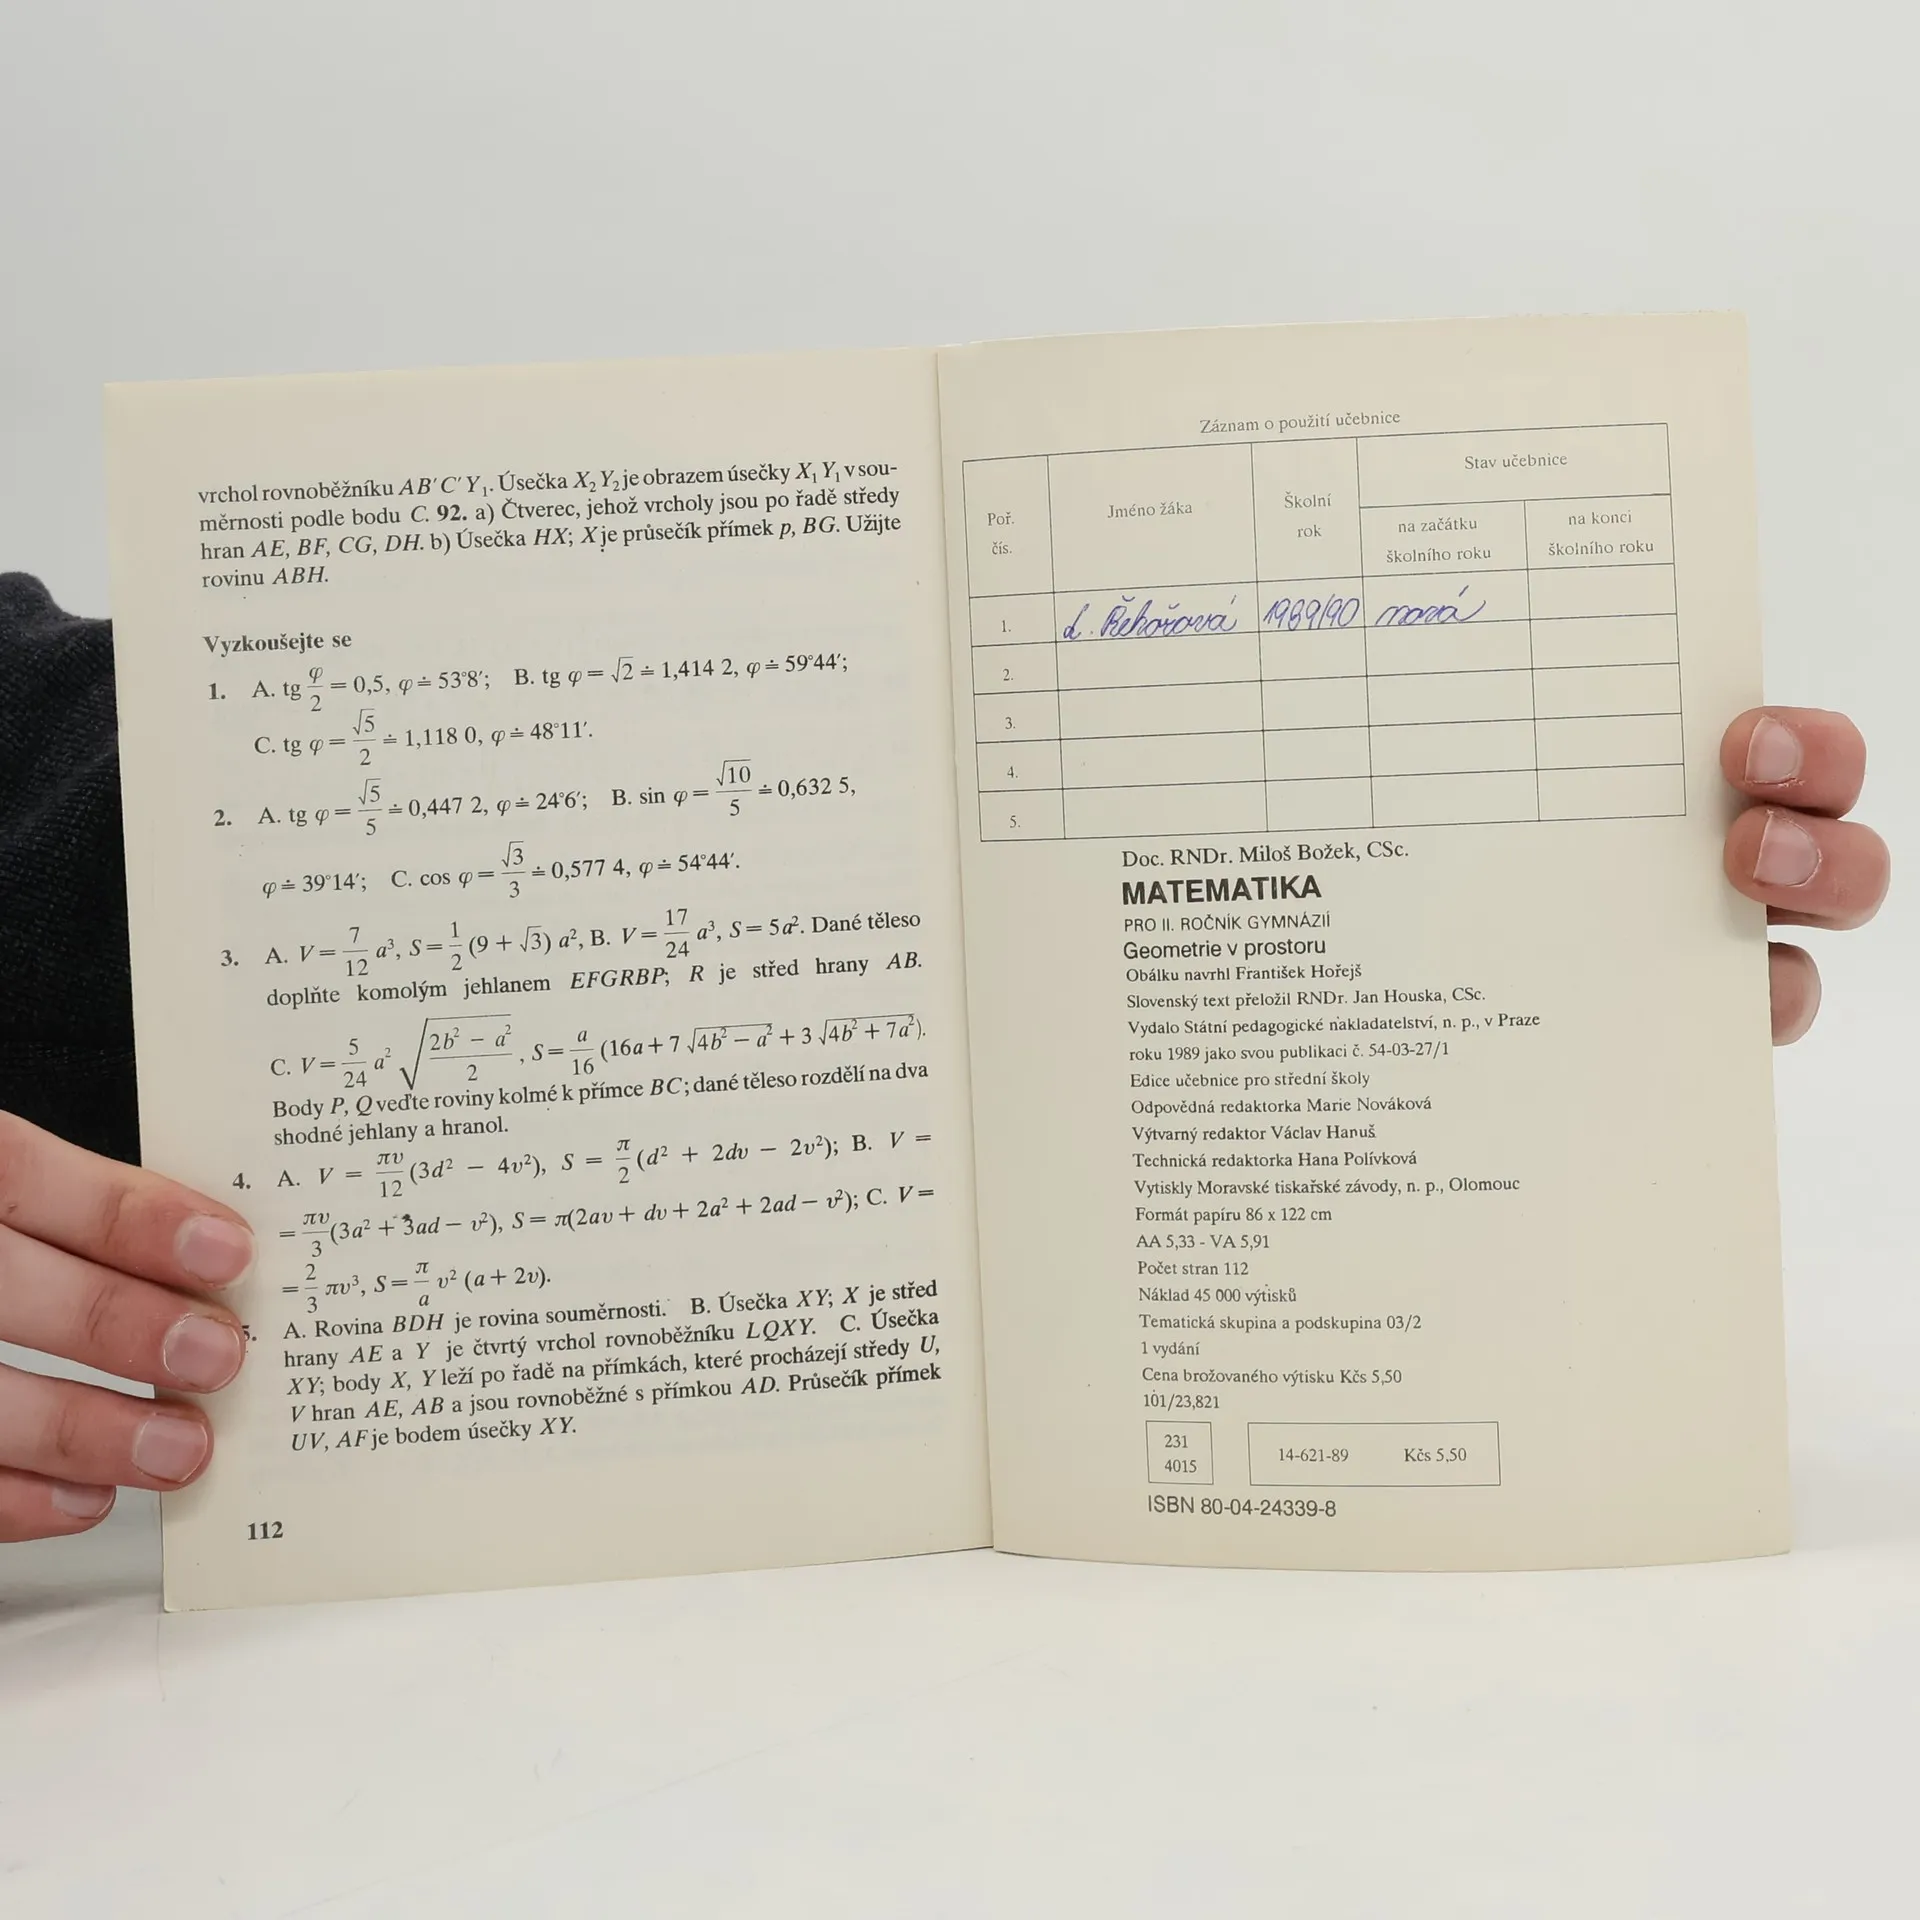 vrchol rovnoběžníku AB′C′Y₁. Úsečka X₂Y₂ je obrazem úsečky X₁Y₁ v sou-
měrnosti podle bodu C. 92. a) Čtverec, jehož vrcholy jsou po řadě středy
hran AE, BF, CG, DH. b) Úsečka HX; X je průsečík přímek p, BG. Užijte
rovinu ABH.
Vyzkoušejte se
1. A. tg φ/2 = 0,5, φ ≐ 53°8′; B. tg φ = √2 ≐ 1,414 2, φ ≐ 59°44′;
C. tg φ = √5/2 ≐ 1,118 0, φ ≐ 48°11′.
2. A. tg φ = √5/5 ≐ 0,447 2, φ ≐ 24°6′; B. sin φ = √10/5 ≐ 0,632 5,
φ ≐ 39°14′; C. cos φ = √3/3 ≐ 0,577 4, φ ≐ 54°44′.
3. A. V = 7/12 a³, S = 1/2 (9 + √3) a², B. V = 17/24 a³, S = 5a². Dané těleso
doplňte komolým jehlanem EFGRBP; R je střed hrany AB.
C. V = 5/24 a² √((2b² − a²)/2), S = a/16 (16a + 7 √(4b² − a²) + 3 √(4b² + 7a²)).
Body P, Q veďte roviny kolmé k přímce BC; dané těleso rozdělí na dva
shodné jehlany a hranol.
4. A. V = πv/12 (3d² − 4v²), S = π/2 (d² + 2dv − 2v²); B. V =
= πv/3 (3a² + 3ad − v²), S = π(2av + dv + 2a² + 2ad − v²); C. V =
= 2/3 πv³, S = π/a v² (a + 2v).
5. A. Rovina BDH je rovina souměrnosti. B. Úsečka XY; X je střed
hrany AE a Y je čtvrtý vrchol rovnoběžníku LQXY. C. Úsečka
XY; body X, Y leží po řadě na přímkách, které procházejí středy U,
V hran AE, AB a jsou rovnoběžné s přímkou AD. Průsečík přímek
UV, AF je bodem úsečky XY.
112
Záznam o použití učebnice
Poř. čís.
Jméno žáka
Školní rok
Stav učebnice
na začátku školního roku
na konci školního roku
1. L. Řehořová 1989/90 nová
2.
3.
4.
5.
Doc. RNDr. Miloš Božek, CSc.
MATEMATIKA
PRO II. ROČNÍK GYMNÁZIÍ
Geometrie v prostoru
Obálku navrhl František Hořejš
Slovenský text přeložil RNDr. Jan Houska, CSc.
Vydalo Státní pedagogické nakladatelství, n. p., v Praze
roku 1989 jako svou publikaci č. 54-03-27/1
Edice učebnice pro střední školy
Odpovědná redaktorka Marie Nováková
Výtvarný redaktor Václav Hanuš
Technická redaktorka Hana Polívková
Vytiskly Moravské tiskařské závody, n. p., Olomouc
Formát papíru 86 x 122 cm
AA 5,33 - VA 5,91
Počet stran 112
Náklad 45 000 výtisků
Tematická skupina a podskupina 03/2
1 vydání
Cena brožovaného výtisku Kčs 5,50
101/23,821
231
4015
14-621-89 Kčs 5,50
ISBN 80-04-24339-8